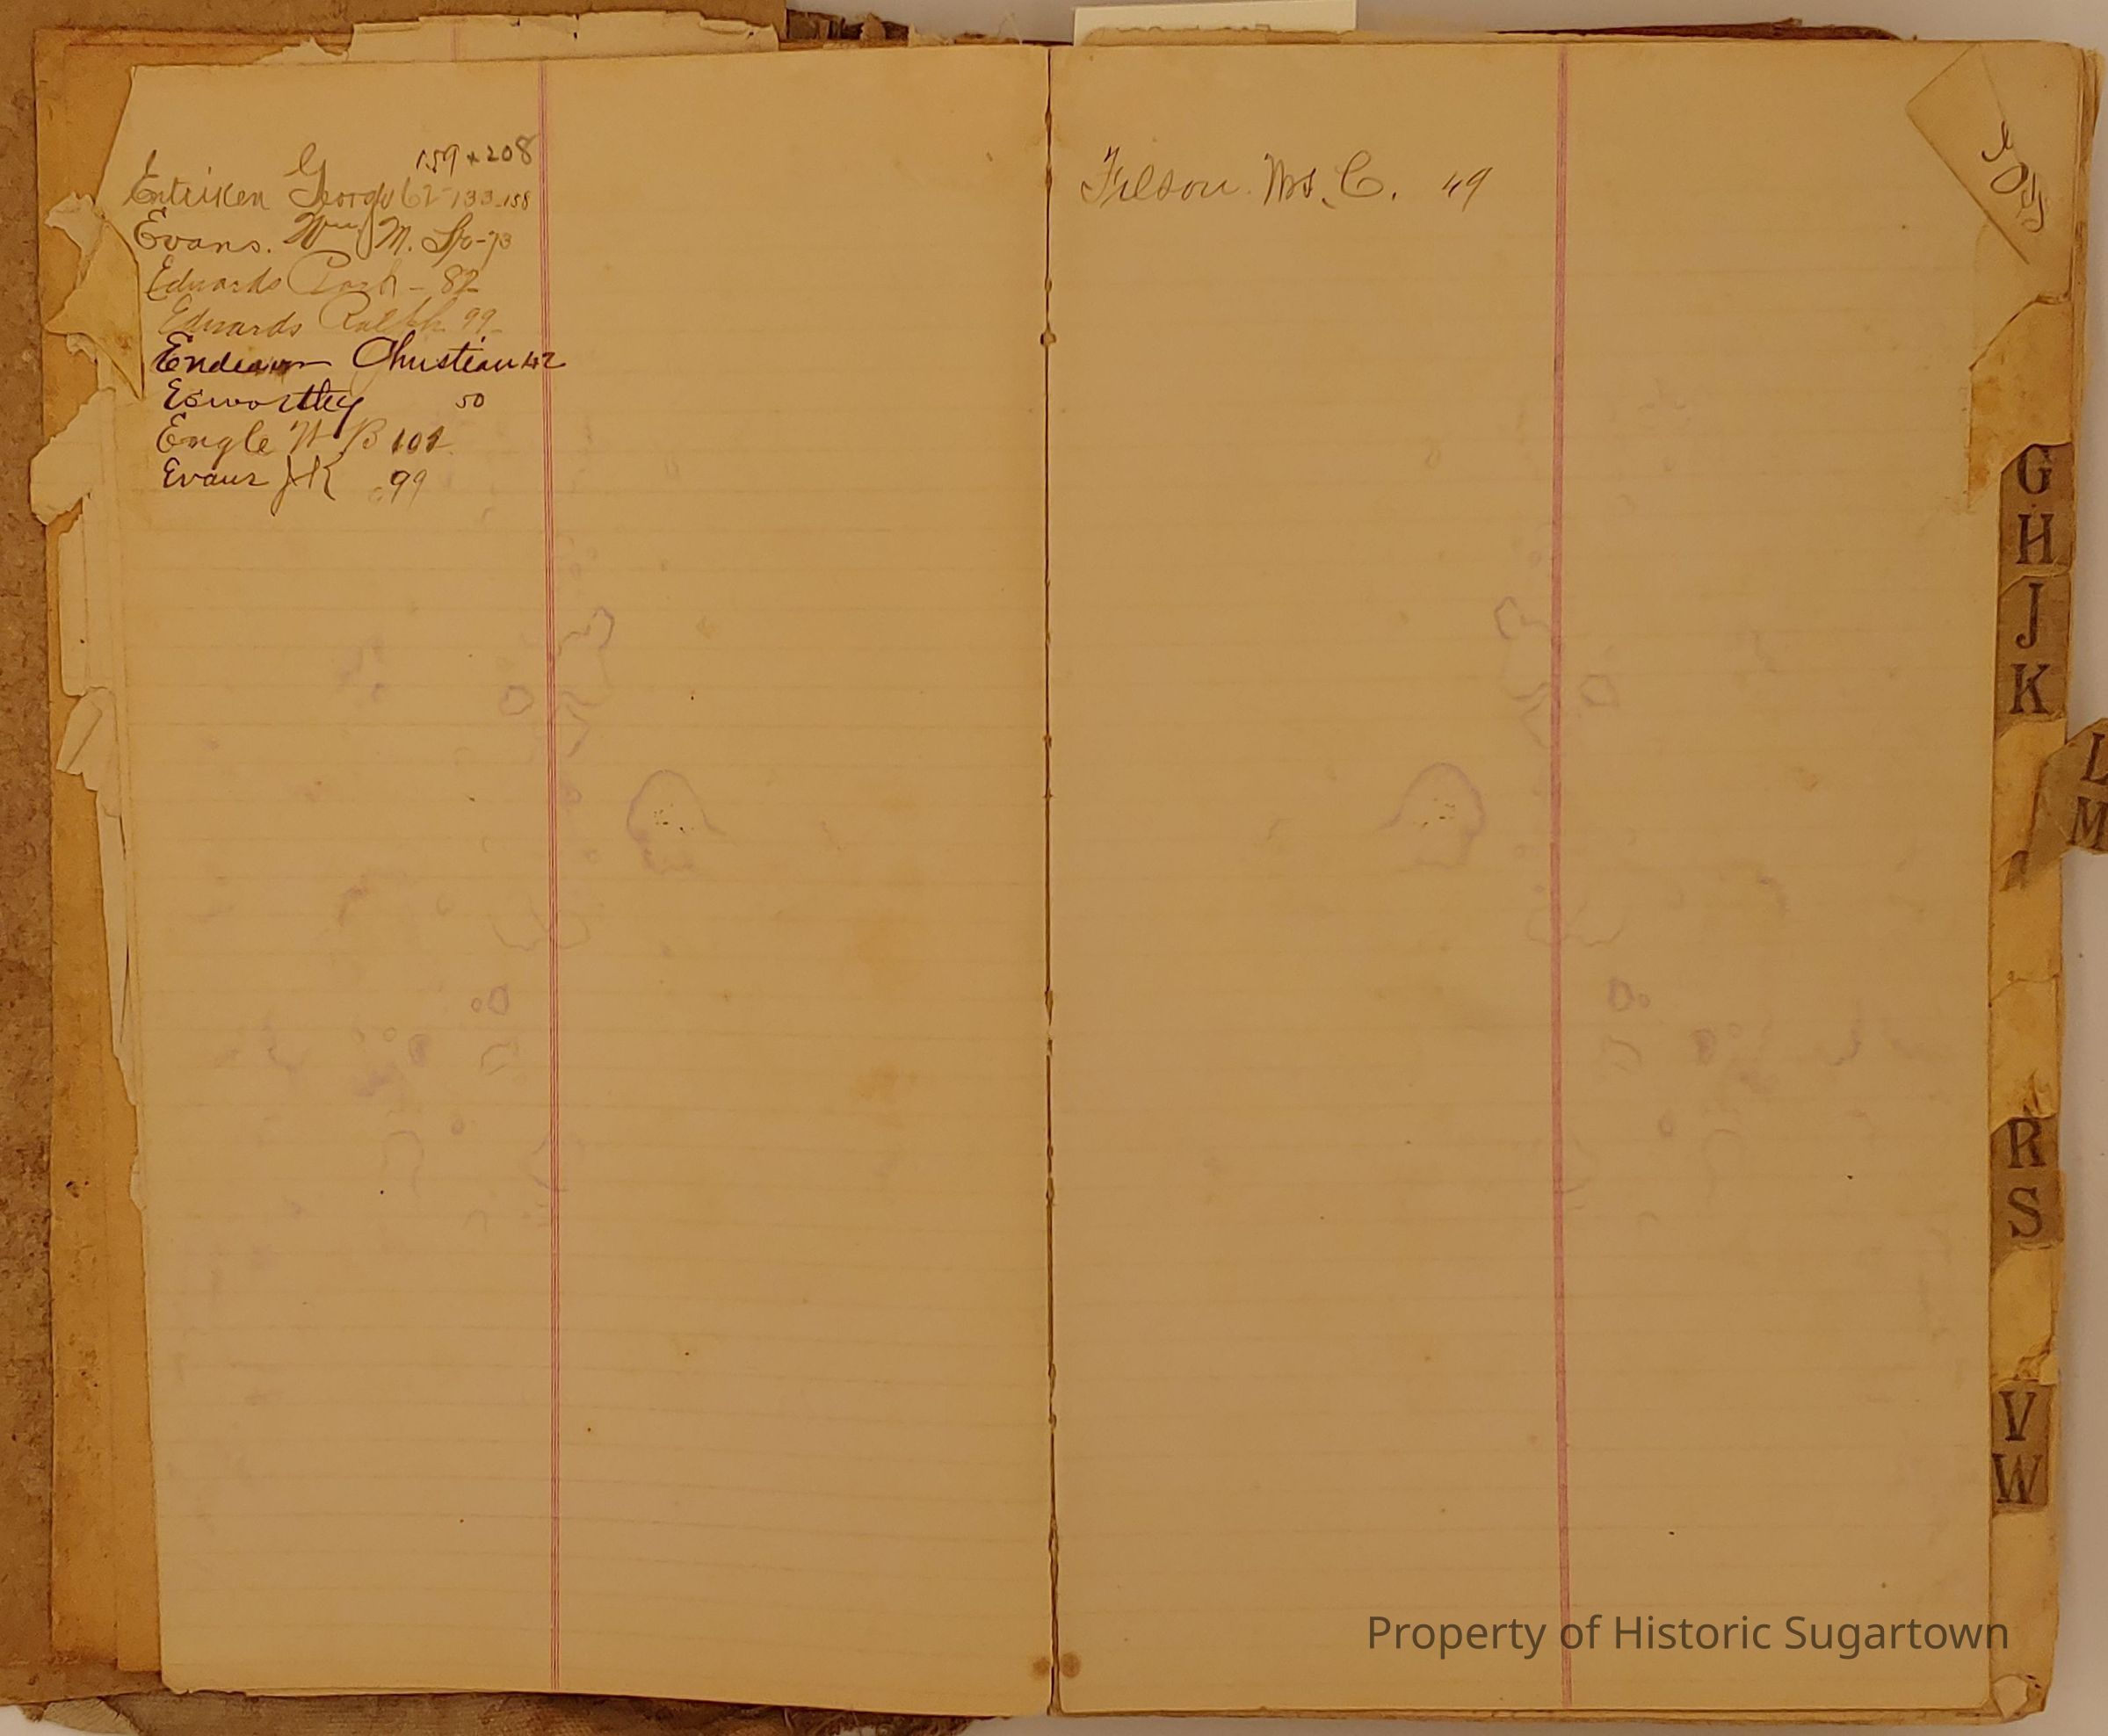 159 & 208
Entriken George 62-133-158
Evans. Wm M. 73
Edwards Cash - 82
Edwards Ralph 99
Endeavor Christian 42
Esworthey 50
Engle H B 101
Evans J K 99
Filson. Mrs. C. 49
G
H
J
K
L
M
R
S
V
W
Property of Historic Sugartown